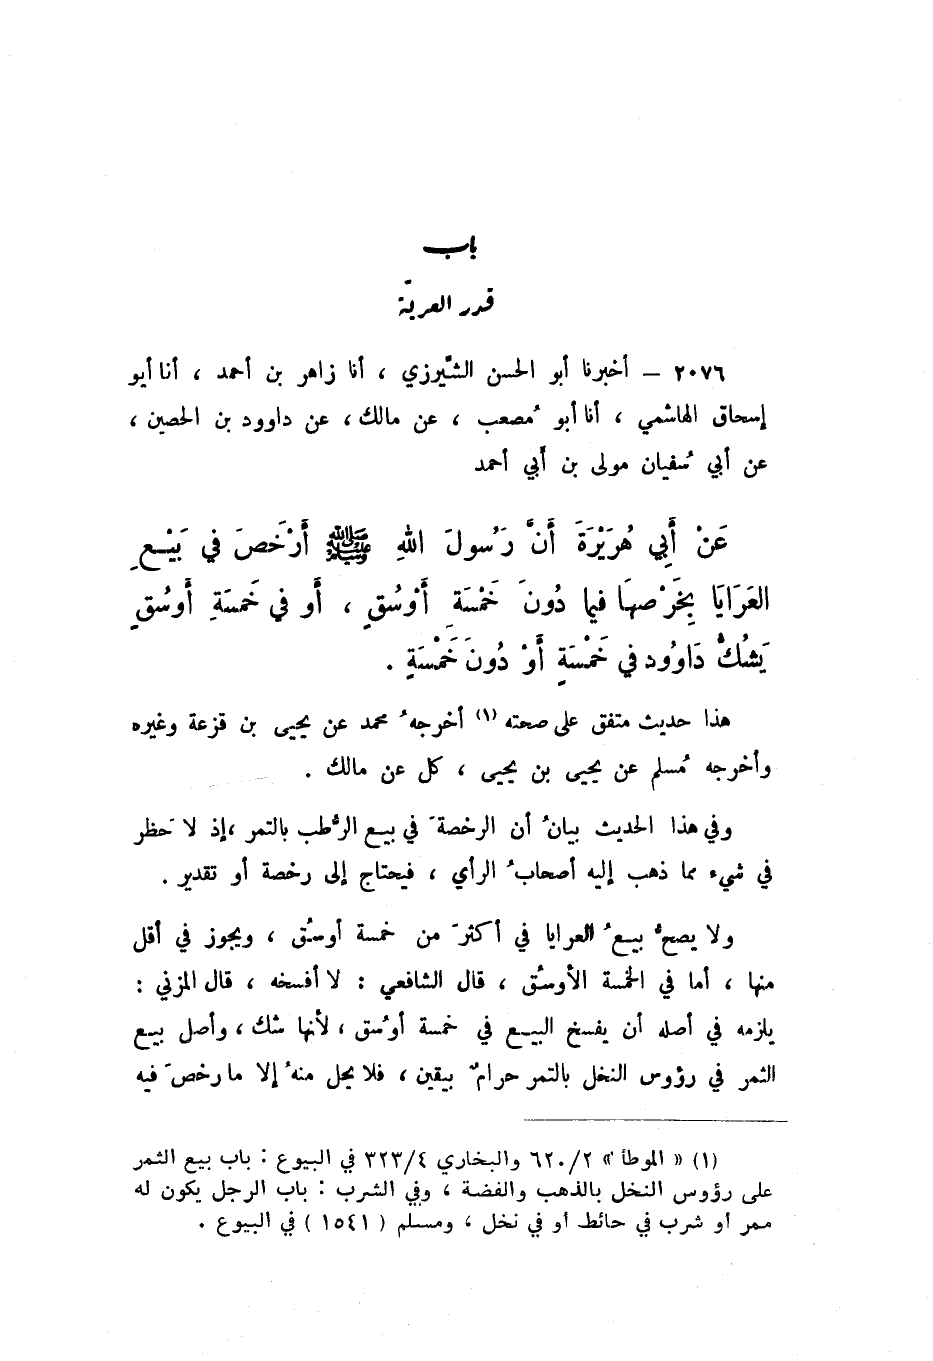 باب
قدر العريّة
٢٠٧٦ – أخبرنا أبو الحسن الشّيرزي ، أنا زاهر بن أحمد ، أنا أبو
إسحاق الهاشمي ، أنا أبو مُصعب ، عن مالك ، عن داوود بن الحصين ،
عن أبي سُفيان مولى بن أبي أحمد
عَنْ أَبِي هُرَيْرَةَ أَنَّ رَسُولَ اللهِ ﷺ أَرْخَصَ في بَيْعِ
العَرَايَا بِخَرْصِهَا فيما دُونَ خَمْسَةِ أَوْسُقٍ ، أَو في خَمسَةِ أَوسُقٍ
يَشُكُّ دَاوُود في خَمْسَةٍ أَوْ دُونَ خَمْسَةٍ .
هذا حديث متفق على صحته (١) أخرجهُ محمد عن يحيى بن قزعة وغيره
وأخرجه مُسلم عن يحيى بن يحيى ، كل عن مالك .
وفي هذا الحديث بيانُ أن الرخصةَ في بيع الرُّطب بالتمر ، إذ لا حَظر
في شيء مما ذهب إليه أصحابُ الرأي ، فيحتاج إلى رخصة أو تقدير .
ولا يصحُّ بيعُ العرايا في أكثرَ من خمسة أوسُق ، ويجوز في أقل
منها ، أما في الخمسة الأوسُق ، قال الشافعي : لا أفسخه ، قال المزني :
يلزمه في أصله أن يفسخ البيع في خمسة أوسُق ، لأنها شك ، وأصل بيع
الثمر في رؤوس النخل بالتمر حرامٌ بيقين ، فلا يحل منهُ إلا ما رخصَ فيه
(١) « الموطأ » ٦٢٠/٢ والبخاري ٣٢٣/٤ في البيوع : باب بيع الثمر
على رؤوس النخل بالذهب والفضة ، وفي الشرب : باب الرجل يكون له
ممر أو شرب في حائط أو في نخل ، ومسلم ( ١٥٤١ ) في البيوع .